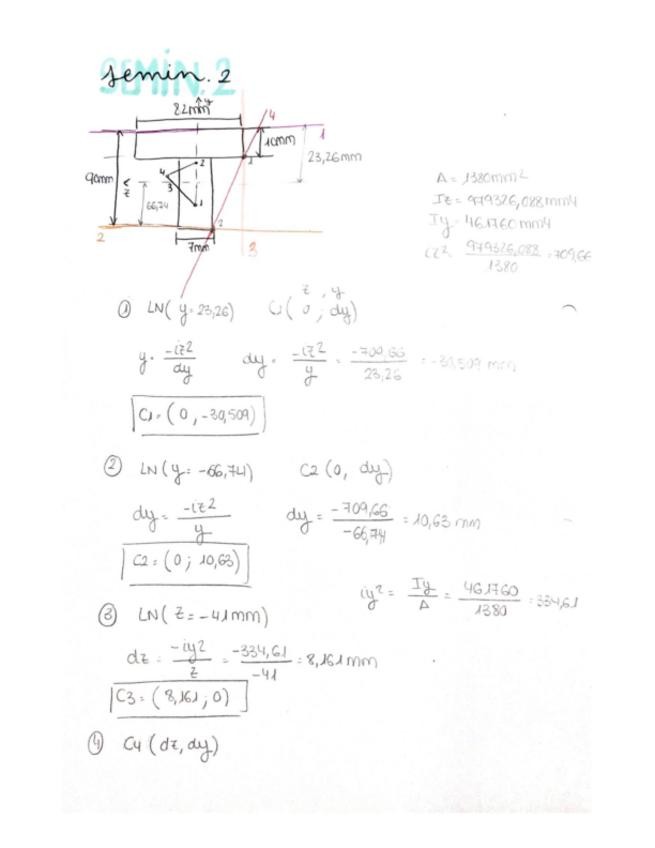 SEMIN. 2
semin. 2
82mm y
4
10mm
1
23,26mm
90mm
z
66,74
4
2
3
1
1
2
2
7mm
3
A = 1380mm2
Iz = 979326,088mm4
Iy = 461760 mm4
iz2 = 979326,088 / 1380 = 709,66
① LN( y=23,26) C1( 0 ; dy)
z , y
y = -iz2 / dy dy = -iz2 / y = -709,66 / 23,26 = -30,509 mm
C1=(0,-30,509)
② LN(y= -66,74) C2(0, dy)
dy = -iz2 / y dy = -709,66 / -66,74 = 10,63 mm
C2=(0; 10,63)
iy2 = Iy / A = 461760 / 1380 = 334,61
③ LN(z= -41mm)
dz = -iy2 / z = -334,61 / -41 = 8,161mm
C3=(8,161;0)
④ C4 (dz,dy)